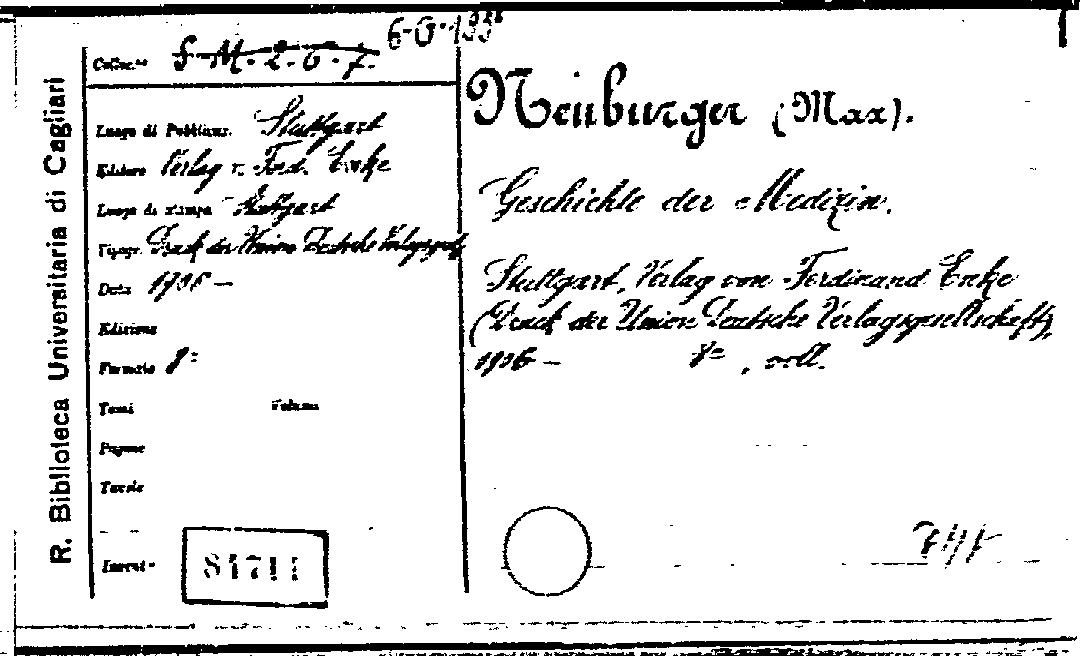 R. Biblioteca Universitaria di Cagliari
Colloc.ne S-M-2-6-7.
6-G-133
Luogo di Pubblicaz. Stuttgart
Editore Verlag v. Ferd. Enke
Luogo di stampa Stuttgart
Tipogr. Druck der Union Deutsche Verlagsges.
Data 1906 —
Edizione
Formato 8º
Tomi Volume
Pagine
Tavole
Invent.º 84711
Neuburger (Max).
Geschichte der Medizin.
Stuttgart, Verlag von Ferdinand Enke
(Druck der Union Deutsche Verlagsgesellschaft),
1906 — 8º, voll.